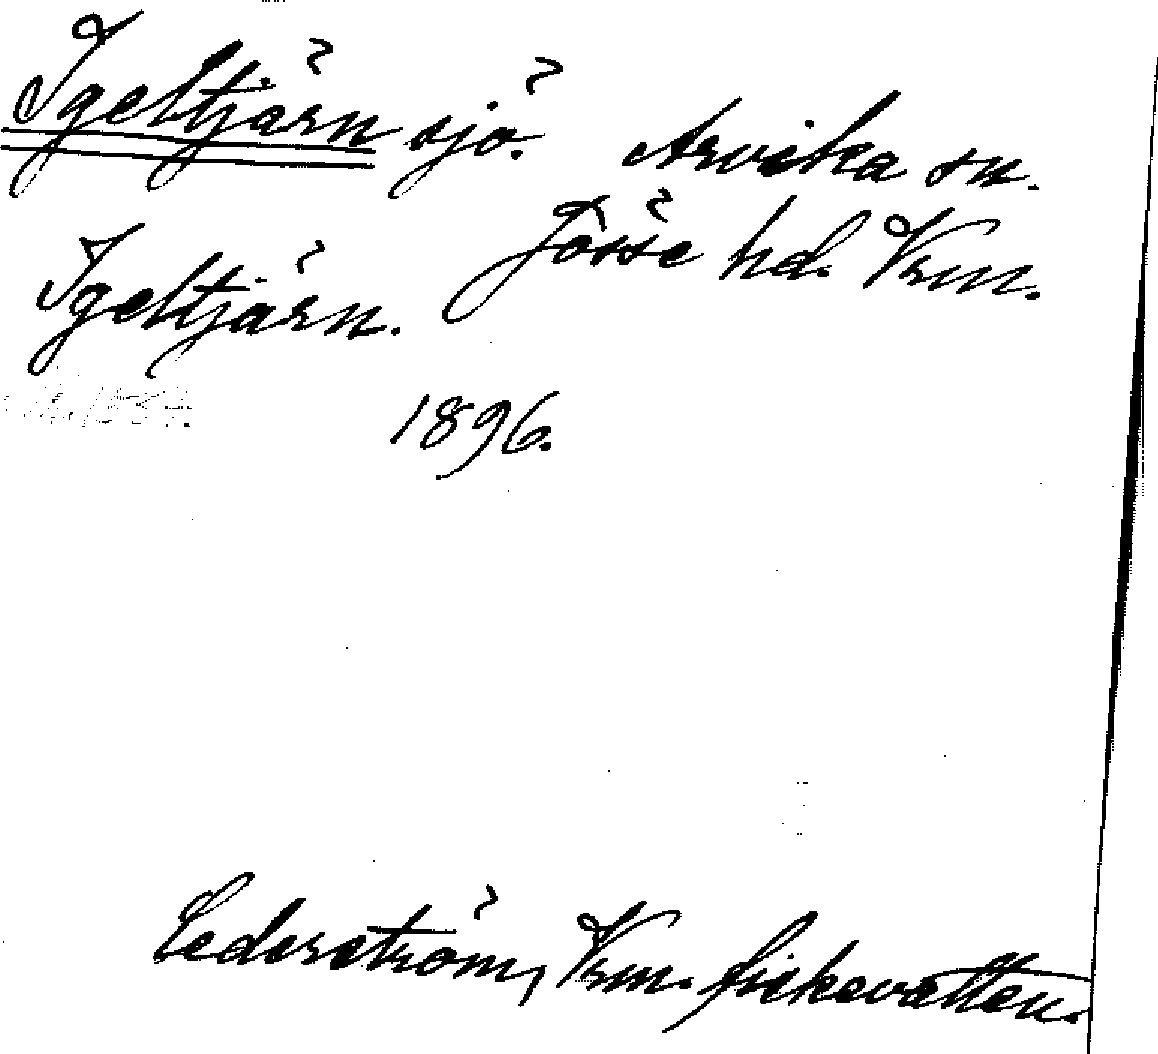 Igeltjärn sjö. Arvika sn.
Jösse hd. Vrm.
Igeltjärn.
1896.
Cederström, Vrm. fiskevatten.